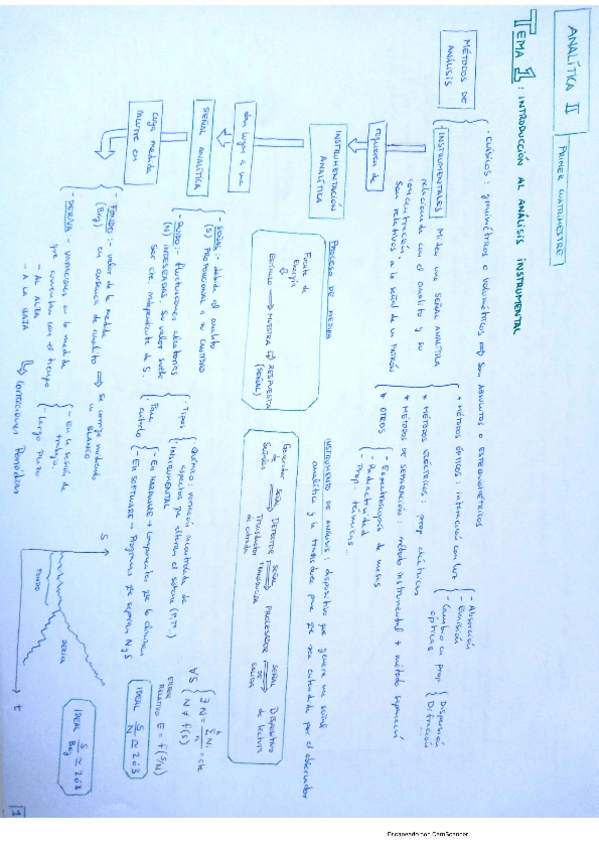 ANALÍTICA II
PRIMER CUATRIMESTRE
TEMA 1: INTRODUCCIÓN AL ANÁLISIS INSTRUMENTAL
MÉTODOS DE
ANÁLISIS
· CLÁSICOS: gravimétricos o volumétricos ⇒ SON ABSOLUTOS O ESTEQUIOMÉTRICOS
· INSTRUMENTALES
Miden una SEÑAL ANALÍTICA
relacionada con el analito y su
concentración.
Son relativos a la señal de un PATRÓN
* MÉTODOS ÓPTICOS: interacción con luz
- Absorción
- Emisión
- Cambio en prop.
ópticas
Dispersión
Difracción
...
* MÉTODOS ELÉCTRICOS: prop. eléctricas
* MÉTODOS DE SEPARACIÓN: método instrumental + método separación
* OTROS
- Espectroscopía de masas
- Radiactividad
- Prop. térmicas...
requieren de
INSTRUMENTACIÓN
ANALÍTICA
PROCESO DE MEDIDA
Fuente de
energía
ESTÍMULO → MUESTRA ⇒ RESPUESTA
(SEÑAL)
INSTRUMENTO DE ANÁLISIS: dispositivo que genera una señal
analítica y la transduce para que sea entendida por el observador
Generador
de
Señales
SEÑAL
DETECTOR
Transductor
de entrada
SEÑAL
TRANSDUCIDA
PROCESADOR
SEÑAL
DE
SALIDA
Dispositivo
de lectura
dan lugar a una
SEÑAL ANALÍTICA
- SEÑAL:- debida al analito
(S) PROPORCIONAL A SU CANTIDAD
- RUIDO:- fluctuaciones aleatorias
(N) INDESEADAS. Su valor suele
ser cte independiente de S.
· Tipos
QUÍMICO: variación incontrolada de
aspectos que alteran el sistema (P, T...)
INSTRUMENTAL
· Para
evitarlo
- En HARDWARE → Componentes que lo eliminan
- En SOFTWARE → Programas que separan N y S
∀S
∃ N = ΣNi / n = cte
N ≠ f(S)
ERROR
RELATIVO E = f(S/N)
IDEAL S/N ≃ 2 ó 3
cuya medida
incurre en
- FONDO:- valor de la medida
(Bkg) en ausencia de analito ⇒ Se corrige midiendo
un BLANCO
- DERIVA - variaciones en la medida
que aumentan con el tiempo
- AL ALTA
- A LA BAJA
- En la sesión de
trabajo.
- Largo Plazo
↳ Correcciones Periódicas
S
FONDO
DERIVA
t
IDEAL S/Bkg ≃ 2 ó 3
1
Escaneado con CamScanner